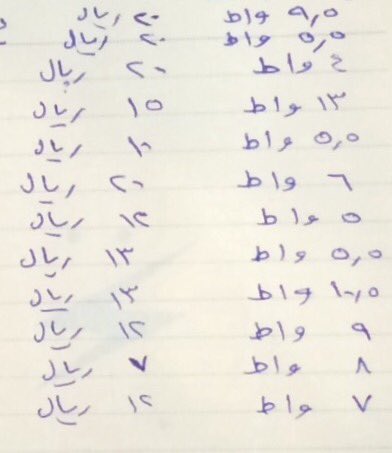 ٩,٥ واط ٢٠ ريال
٥,٥ واط ٢٠ ريال
٤ واط ٢٠ ريال
١٣ واط ١٥ ريال
٥,٥ واط ١٠ ريال
٦ واط ٢٠ ريال
٥ واط ١٢ ريال
٥,٥ واط ١٣ ريال
١٠,٥ واط ١٣ ريال
٩ واط ١٢ ريال
٨ واط ٧ ريال
٧ واط ١٢ ريال